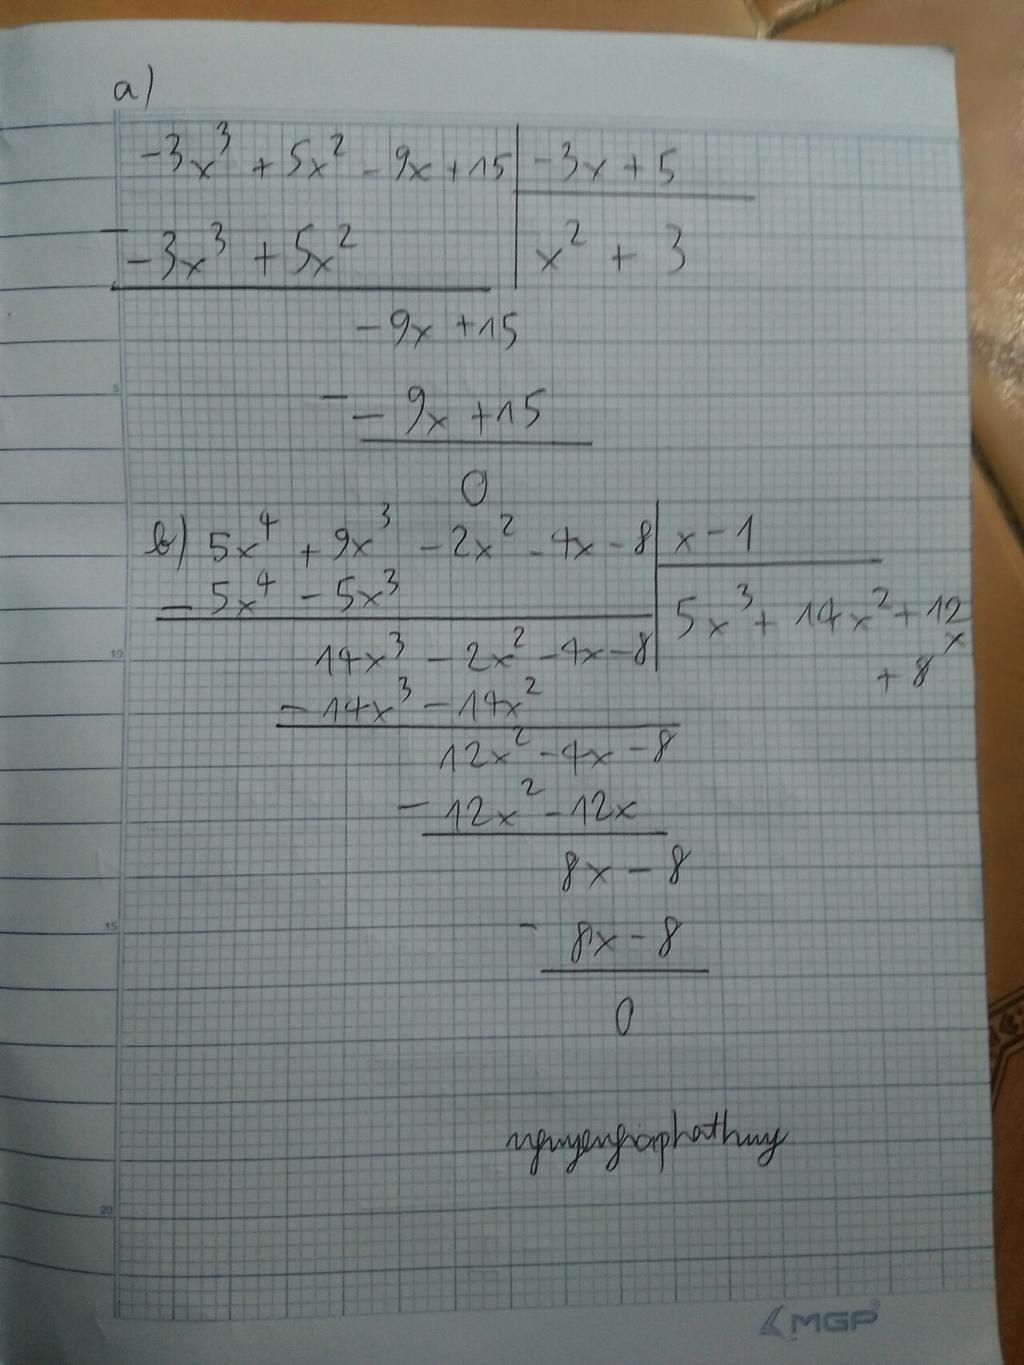 a)
-3x³ + 5x² - 9x + 15 | -3x + 5
- -3x³ + 5x² | x² + 3
-9x + 15
- -9x + 15
0
b) 5x⁴ + 9x³ - 2x² - 4x - 8 | x - 1
- 5x⁴ - 5x³ | 5x³ + 14x² + 12x
14x³ - 2x² - 4x - 8 | + 8
- 14x³ - 14x²
12x² - 4x - 8
- 12x² - 12x
8x - 8
- 8x - 8
0
nguyengiaphathuy
5
10
15
20
MGP